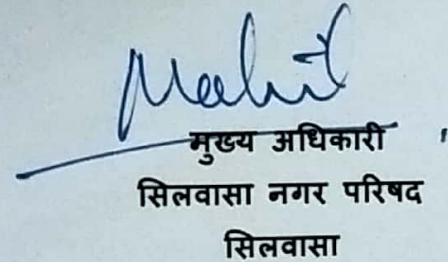 मुख्य अधिकारी
सिलवासा नगर परिषद
सिलवासा